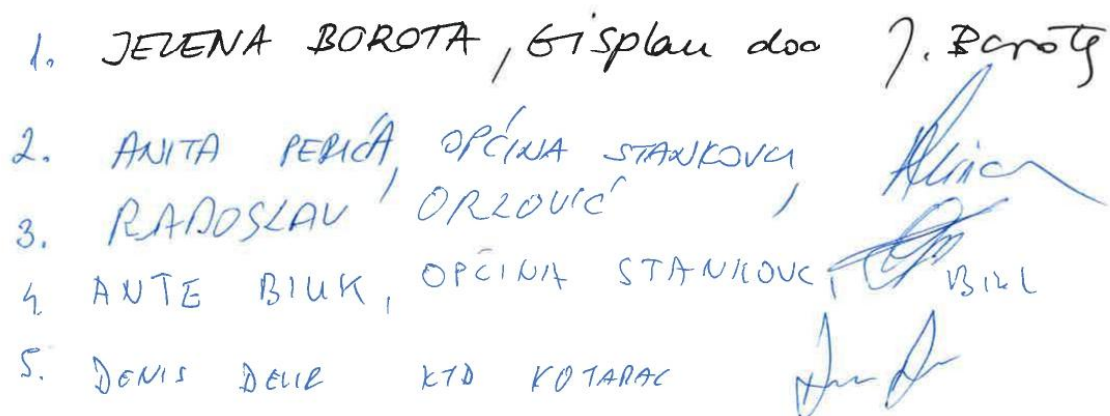 1. JELENA BOROTA, Gisplan doo J. Borota
2. ANITA PERICA, OPĆINA STANKOVCI,
3. RADOSLAV ORLOVIĆ
4. ANTE BIUK, OPĆINA STANKOVC,
5. DENIS DELIĆ KTD KOTARAC